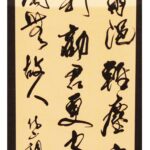 雨浥輕塵
新勸君更盡
關無故人